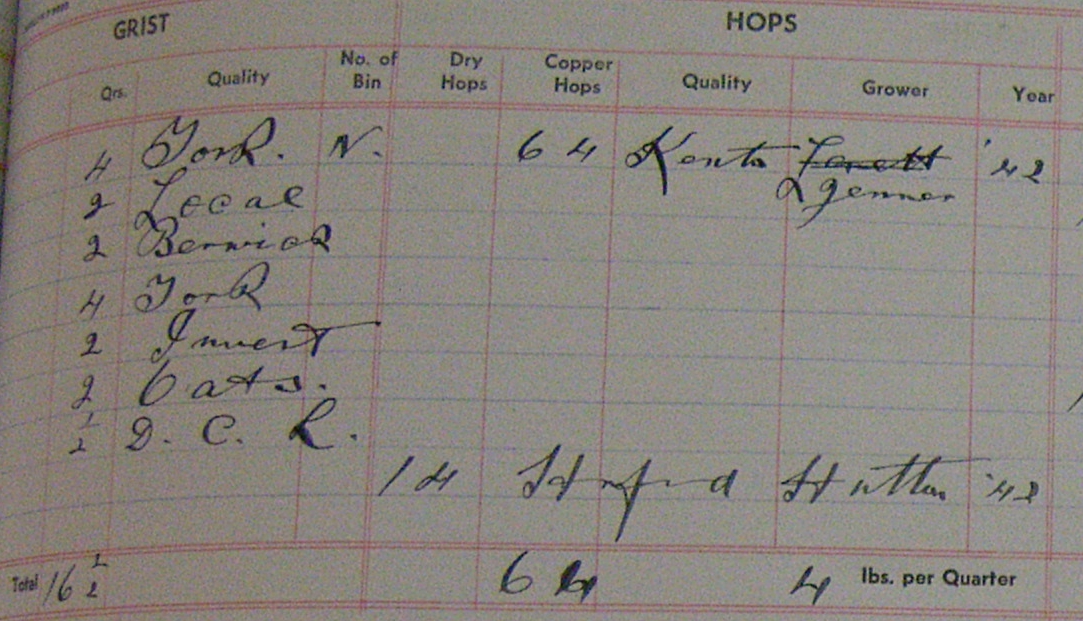 GRIST HOPS
Qrs. Quality No. of Bin Dry Hops Copper Hops Quality Grower Year
4 York. N. 64 Kents '42
2 Local
2 Berwick
4 York
2 Invert
2 Oats.
1/2 D. C. L.
14 '42
Total 16 1/2 64 4 lbs. per Quarter